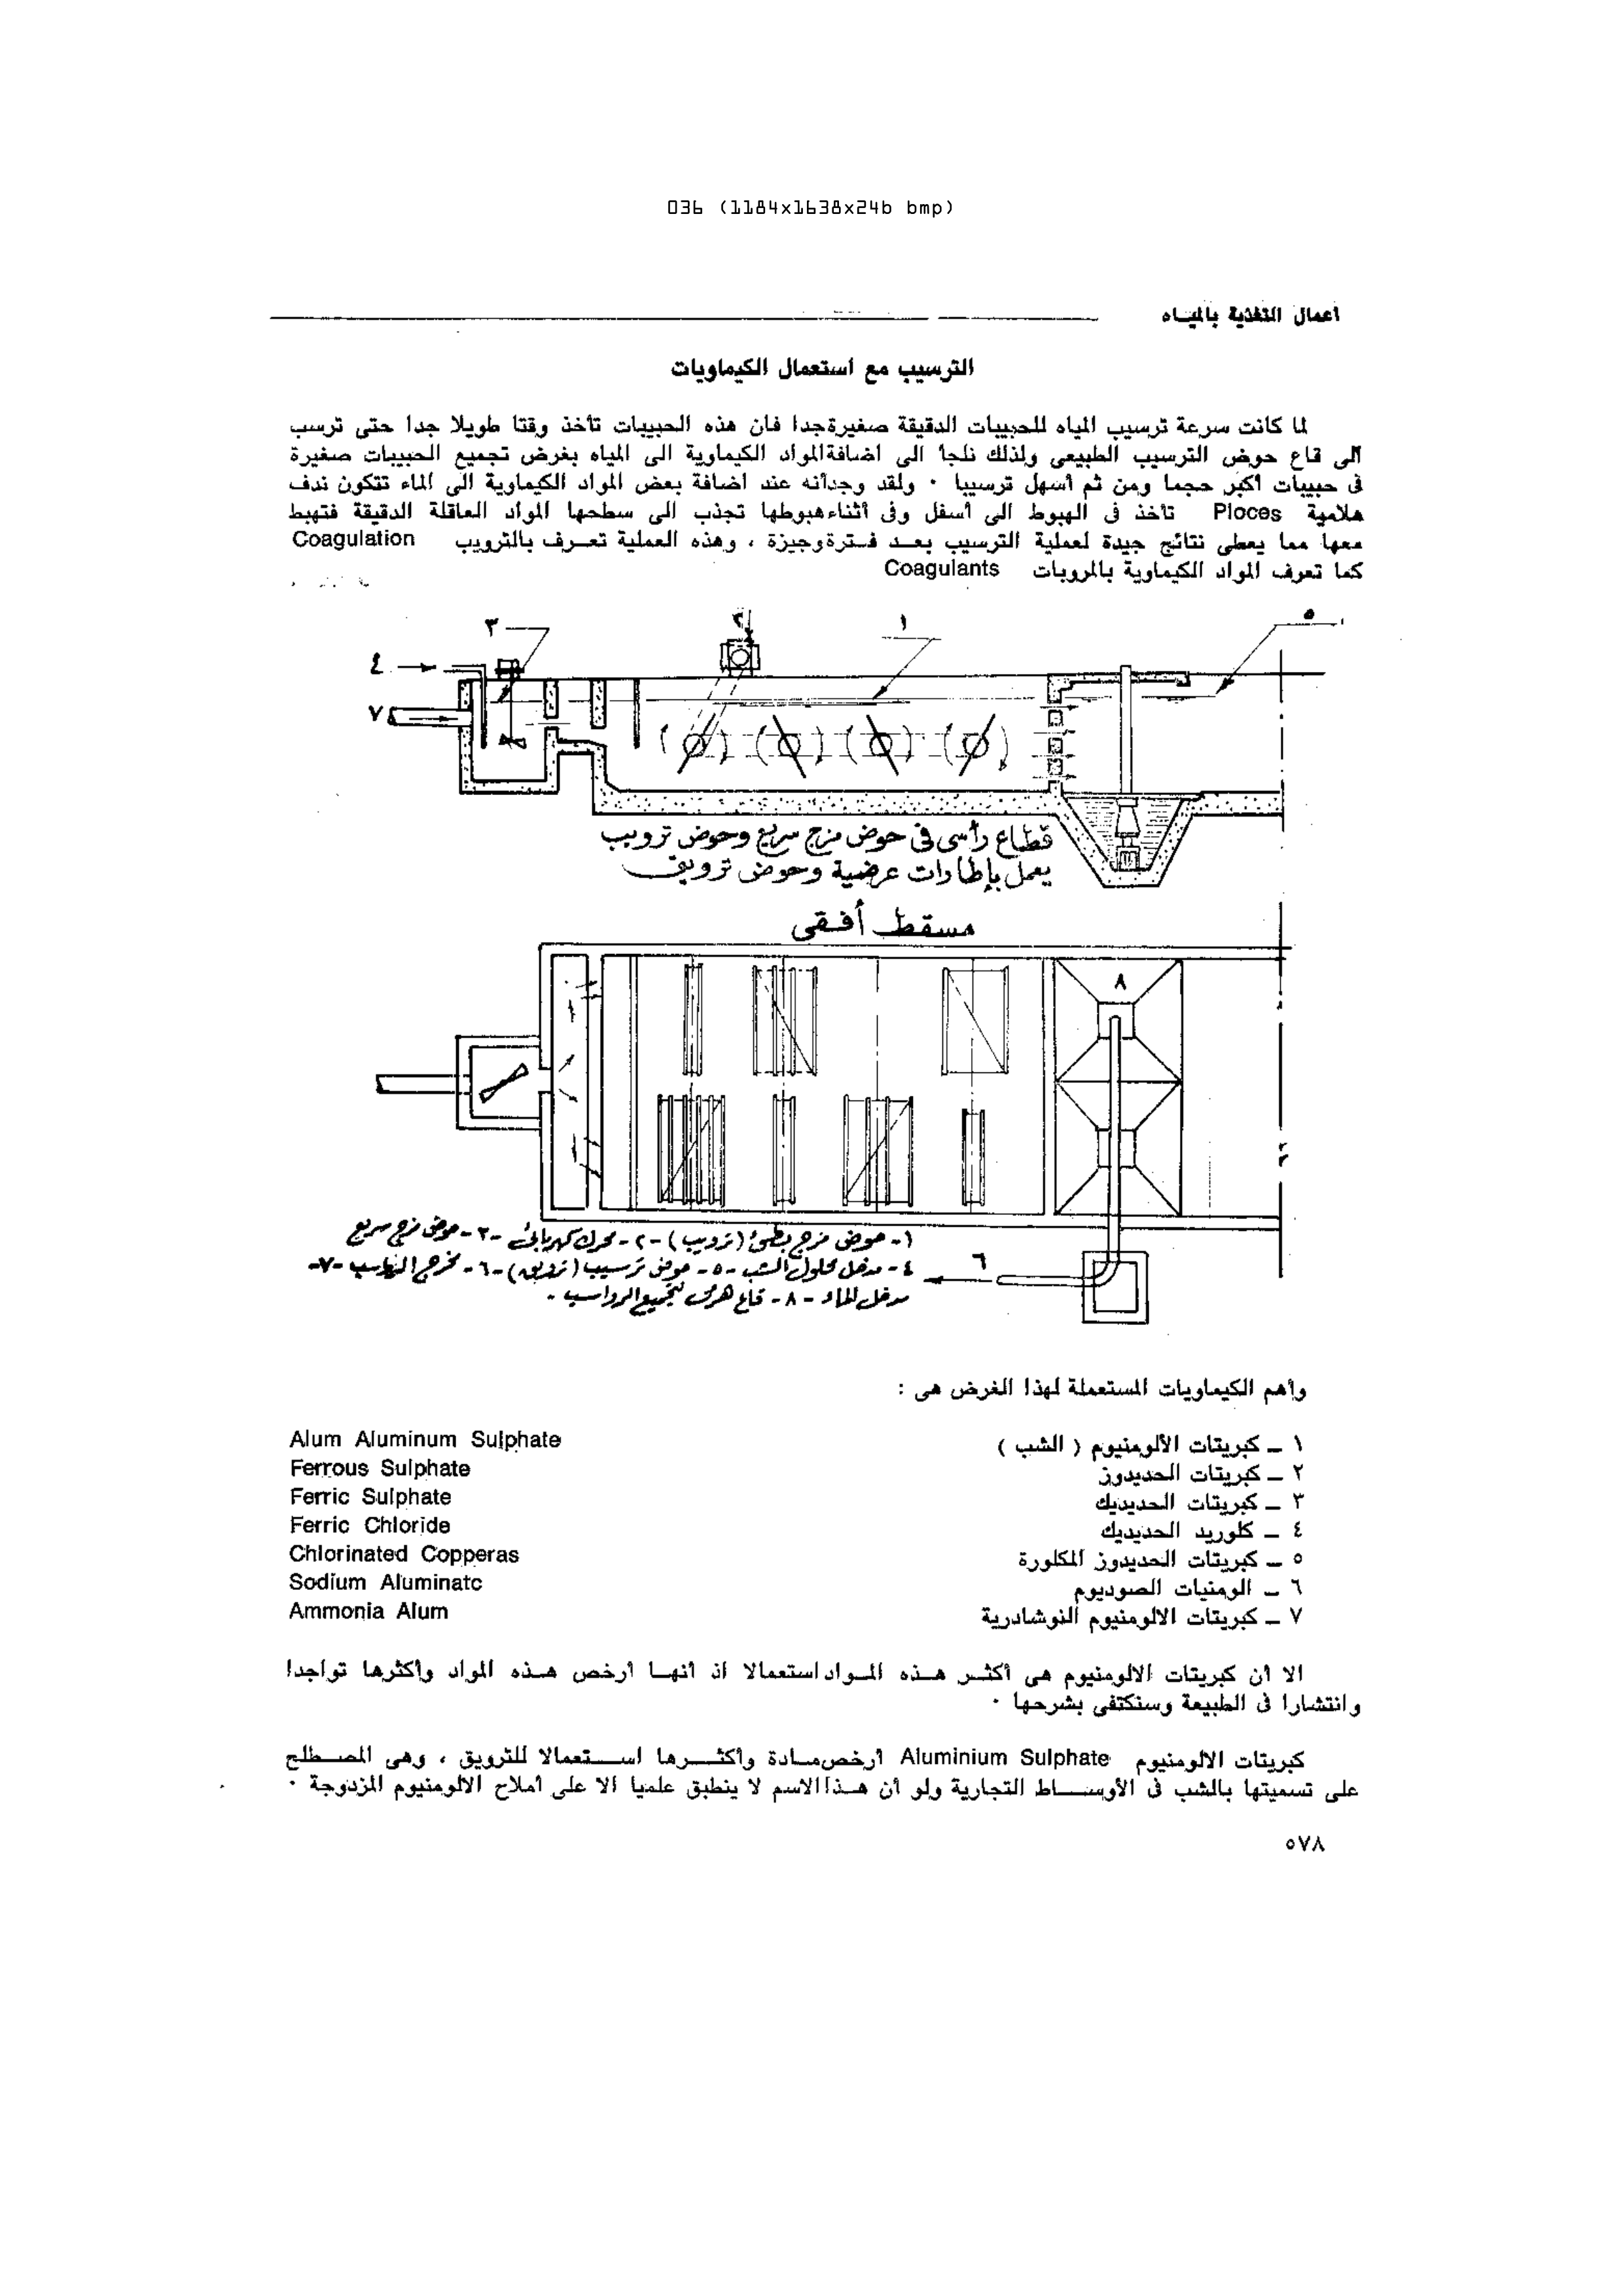 036 (1184x1638x24b bmp)
أعمال التغذية بالمياه
الترسيب مع استعمال الكيماويات
لما كانت سرعة ترسيب المياه للحبيبات الدقيقة صغيرة جدا فان هذه الحبيبات تأخذ وقتا طويلا جدا حتى ترسب
الى قاع حوض الترسيب الطبيعى ولذلك نلجأ الى اضافة المواد الكيماوية الى المياه بغرض تجميع الحبيبات صغيرة
فى حبيبات أكبر حجما ومن ثم أسهل ترسيبا . ولقد وجد أنه عند اضافة بعض المواد الكيماوية الى الماء تتكون ندف
هلامية Ploces تأخذ فى الهبوط الى أسفل وفى أثناء هبوطها تجذب الى سطحها المواد العالقة الدقيقة فتهبط
معها مما يعطى نتائج جيدة لعملية الترسيب بعد فترة وجيزة ، وهذه العملية تعرف بالترويب Coagulation
كما تعرف المواد الكيماوية بالمروبات Coagulants
٥
١
٢
٣
٤
٧
قطاع رأسى فى حوض مزج سريع وحوض ترويب
يعمل بإطارات عرضية وحوض ترويق
مسقط أفقى
٨
١- حوض مزج بطئ (ترويب) -٢- محرك كهربائى -٣- حوض مزج سريع
٤- مدخل محلول الشب -٥- حوض ترسيب (ترويق) -٦- مخرج الرواسب -٧-
مدخل الماء -٨- قاع هرمى لتجميع الرواسب .
٦
وأهم الكيماويات المستعملة لهذا الغرض هى :
١ ــ كبريتات الألومنيوم ( الشب ) Alum Aluminum Sulphate
٢ ــ كبريتات الحديدوز Ferrous Sulphate
٣ ــ كبريتات الحديديك Ferric Sulphate
٤ ــ كلوريد الحديديك Ferric Chloride
٥ ــ كبريتات الحديدوز المكلورة Chlorinated Copperas
٦ ــ الومنيات الصوديوم Sodium Aluminatc
٧ ــ كبريتات الالومنيوم النوشادرية Ammonia Alum
الا أن كبريتات الالومنيوم هى أكثر هذه المواد استعمالا اذ أنها أرخص هذه المواد وأكثرها تواجدا
وانتشارا فى الطبيعة وسنكتفى بشرحها .
كبريتات الالومنيوم Aluminium Sulphate أرخص مادة وأكثرها استعمالا للترويق ، وهى المصطلح
على تسميتها بالشب فى الأوساط التجارية ولو أن هذا الاسم لا ينطبق علميا الا على أملاح الالومنيوم المزدوجة .
٥٧٨